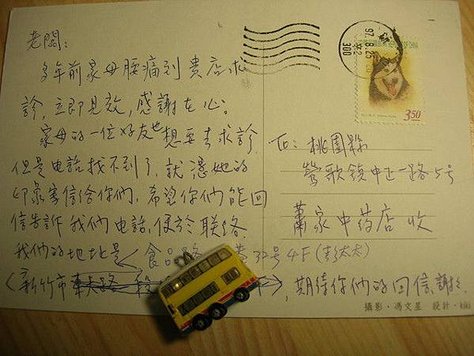 老闆:
多年前家母腰痛到貴店求
診,立即見效,感謝在心。
家母的一位好友也想要去求診
但是电話找不到了,就憑她的
印象寄信给你們,希望你們能回
信告訴我們电話,便於联络
我們的地址是 食品路 巷30号4F(彭太太)
(新竹市 ),期待你們的回信,謝谢
To: 桃園縣
鶯歌鎮中正一路5号
蕭家中药店 收
97.8.25
300
3.50
攝影·馮文星 設計·kiki